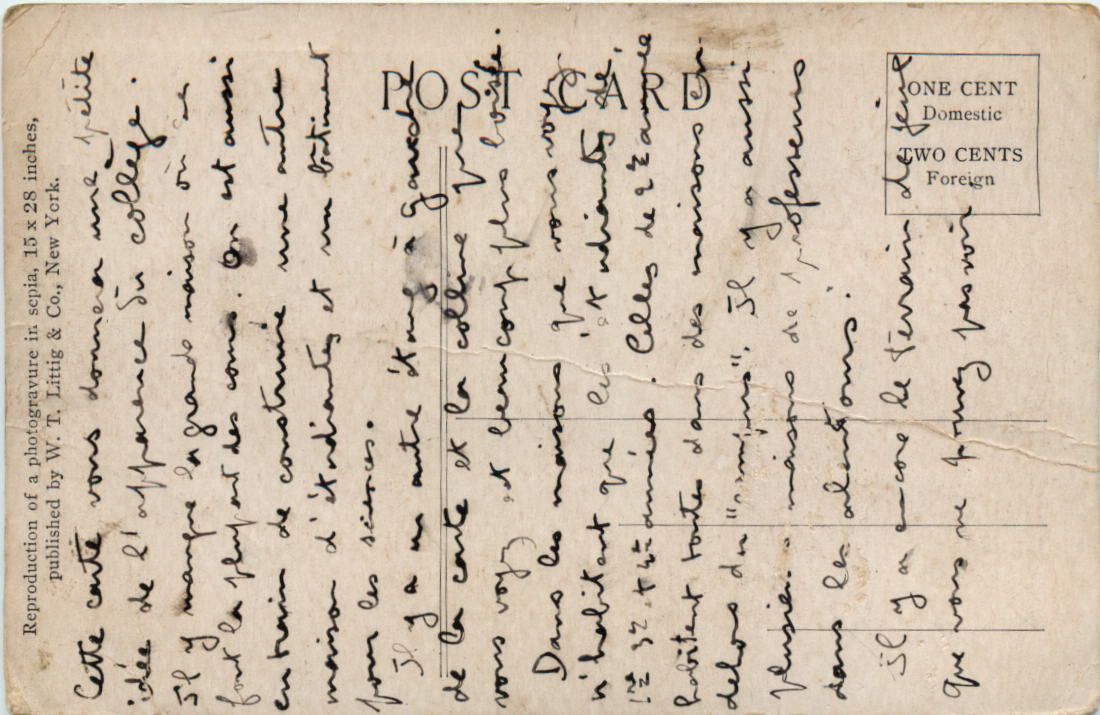 POST CARD
ONE CENT
Domestic
TWO CENTS
Foreign
Reproduction of a photogravure in sepia, 15 x 28 inches,
published by W. T. Littig & Co., New York.
Cette carte vous donnera une petite
idée de l'apparence du collège.
Il y manque la grande maison où se
font la plupart des cours. On est aussi
en train de construire une autre
maison d'étudiantes et un bâtiment
pour les sciences.
Il y a un autre étang à gauche
de la carte et la colline que
vous voyez est beaucoup plus boisée.
Dans les maisons que vous voyez
n'habitent que les étudiantes de
1re 3e et 4e années. Celles de 2e année
habitent toutes dans des maisons en
dehors du "campus". Il y a aussi
plusieurs maisons de professeurs
dans les alentours.
Il y a encore le terrain de jeux
que vous ne pouvez pas voir